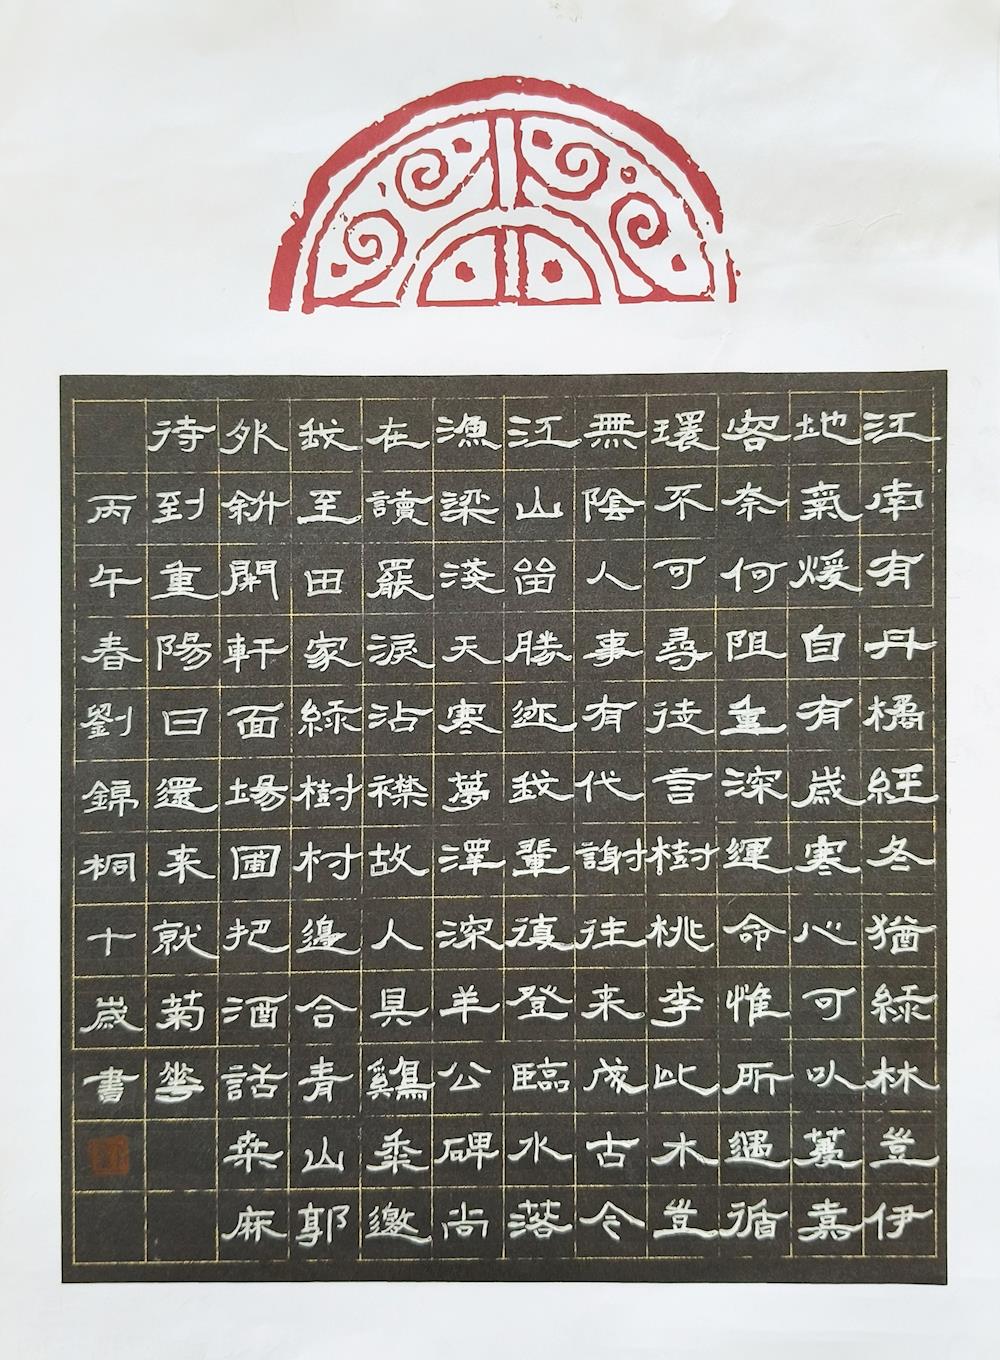 江南有丹橘經冬猶綠林豈伊
地氣煖自有歲寒心可以薦嘉
客奈何阻重深運命惟所遇循
環不可尋徒言樹桃李此木豈
無陰人事有代謝往来成古今
江山留勝迹我輩復登臨水落
漁梁淺天寒夢澤深羊公碑尚
在讀罷淚沾襟故人具鷄黍邀
我至田家綠樹村邊合青山郭
外斜開軒面場圃把酒話桒麻
待到重陽日還来就菊華
丙午春劉錦桐十歲書